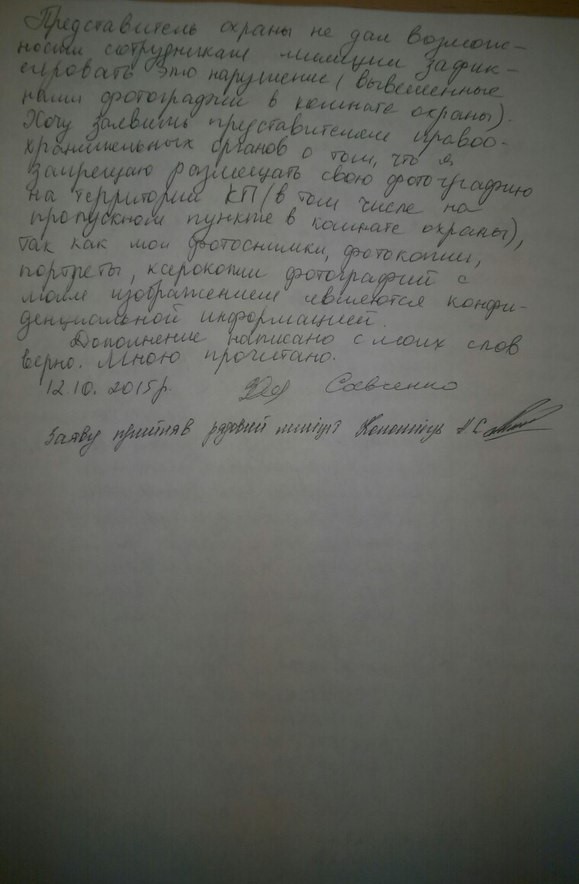 Представитель охраны не дал возмож-
ности сотрудникам милиции зафик-
сировать это нарушение (вывешенные
нами фотографии в комнате охраны).
Хочу заявить представителем правоо-
хранительных органов о том, что я
запрещаю размещать свою фотографию
на территории КП (в том числе на
пропускном пункте в комнате охраны),
так как мои фотоснимки, фотокопии,
портреты, ксерокопии фотографий с
моим изображением являются конфи-
денциальной информацией.
Дополнение написано с моих слов
верно. Мною прочитано.
12.10.2015 г. Савченко
Заяву прийняв рядовий міліції